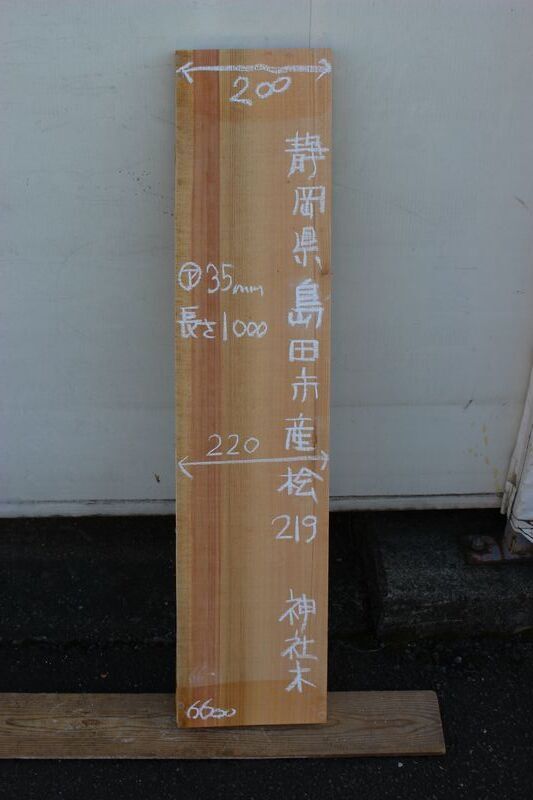 200
静岡県島田市産桧
219
神社木
㋐35mm
長さ1000
220
6600